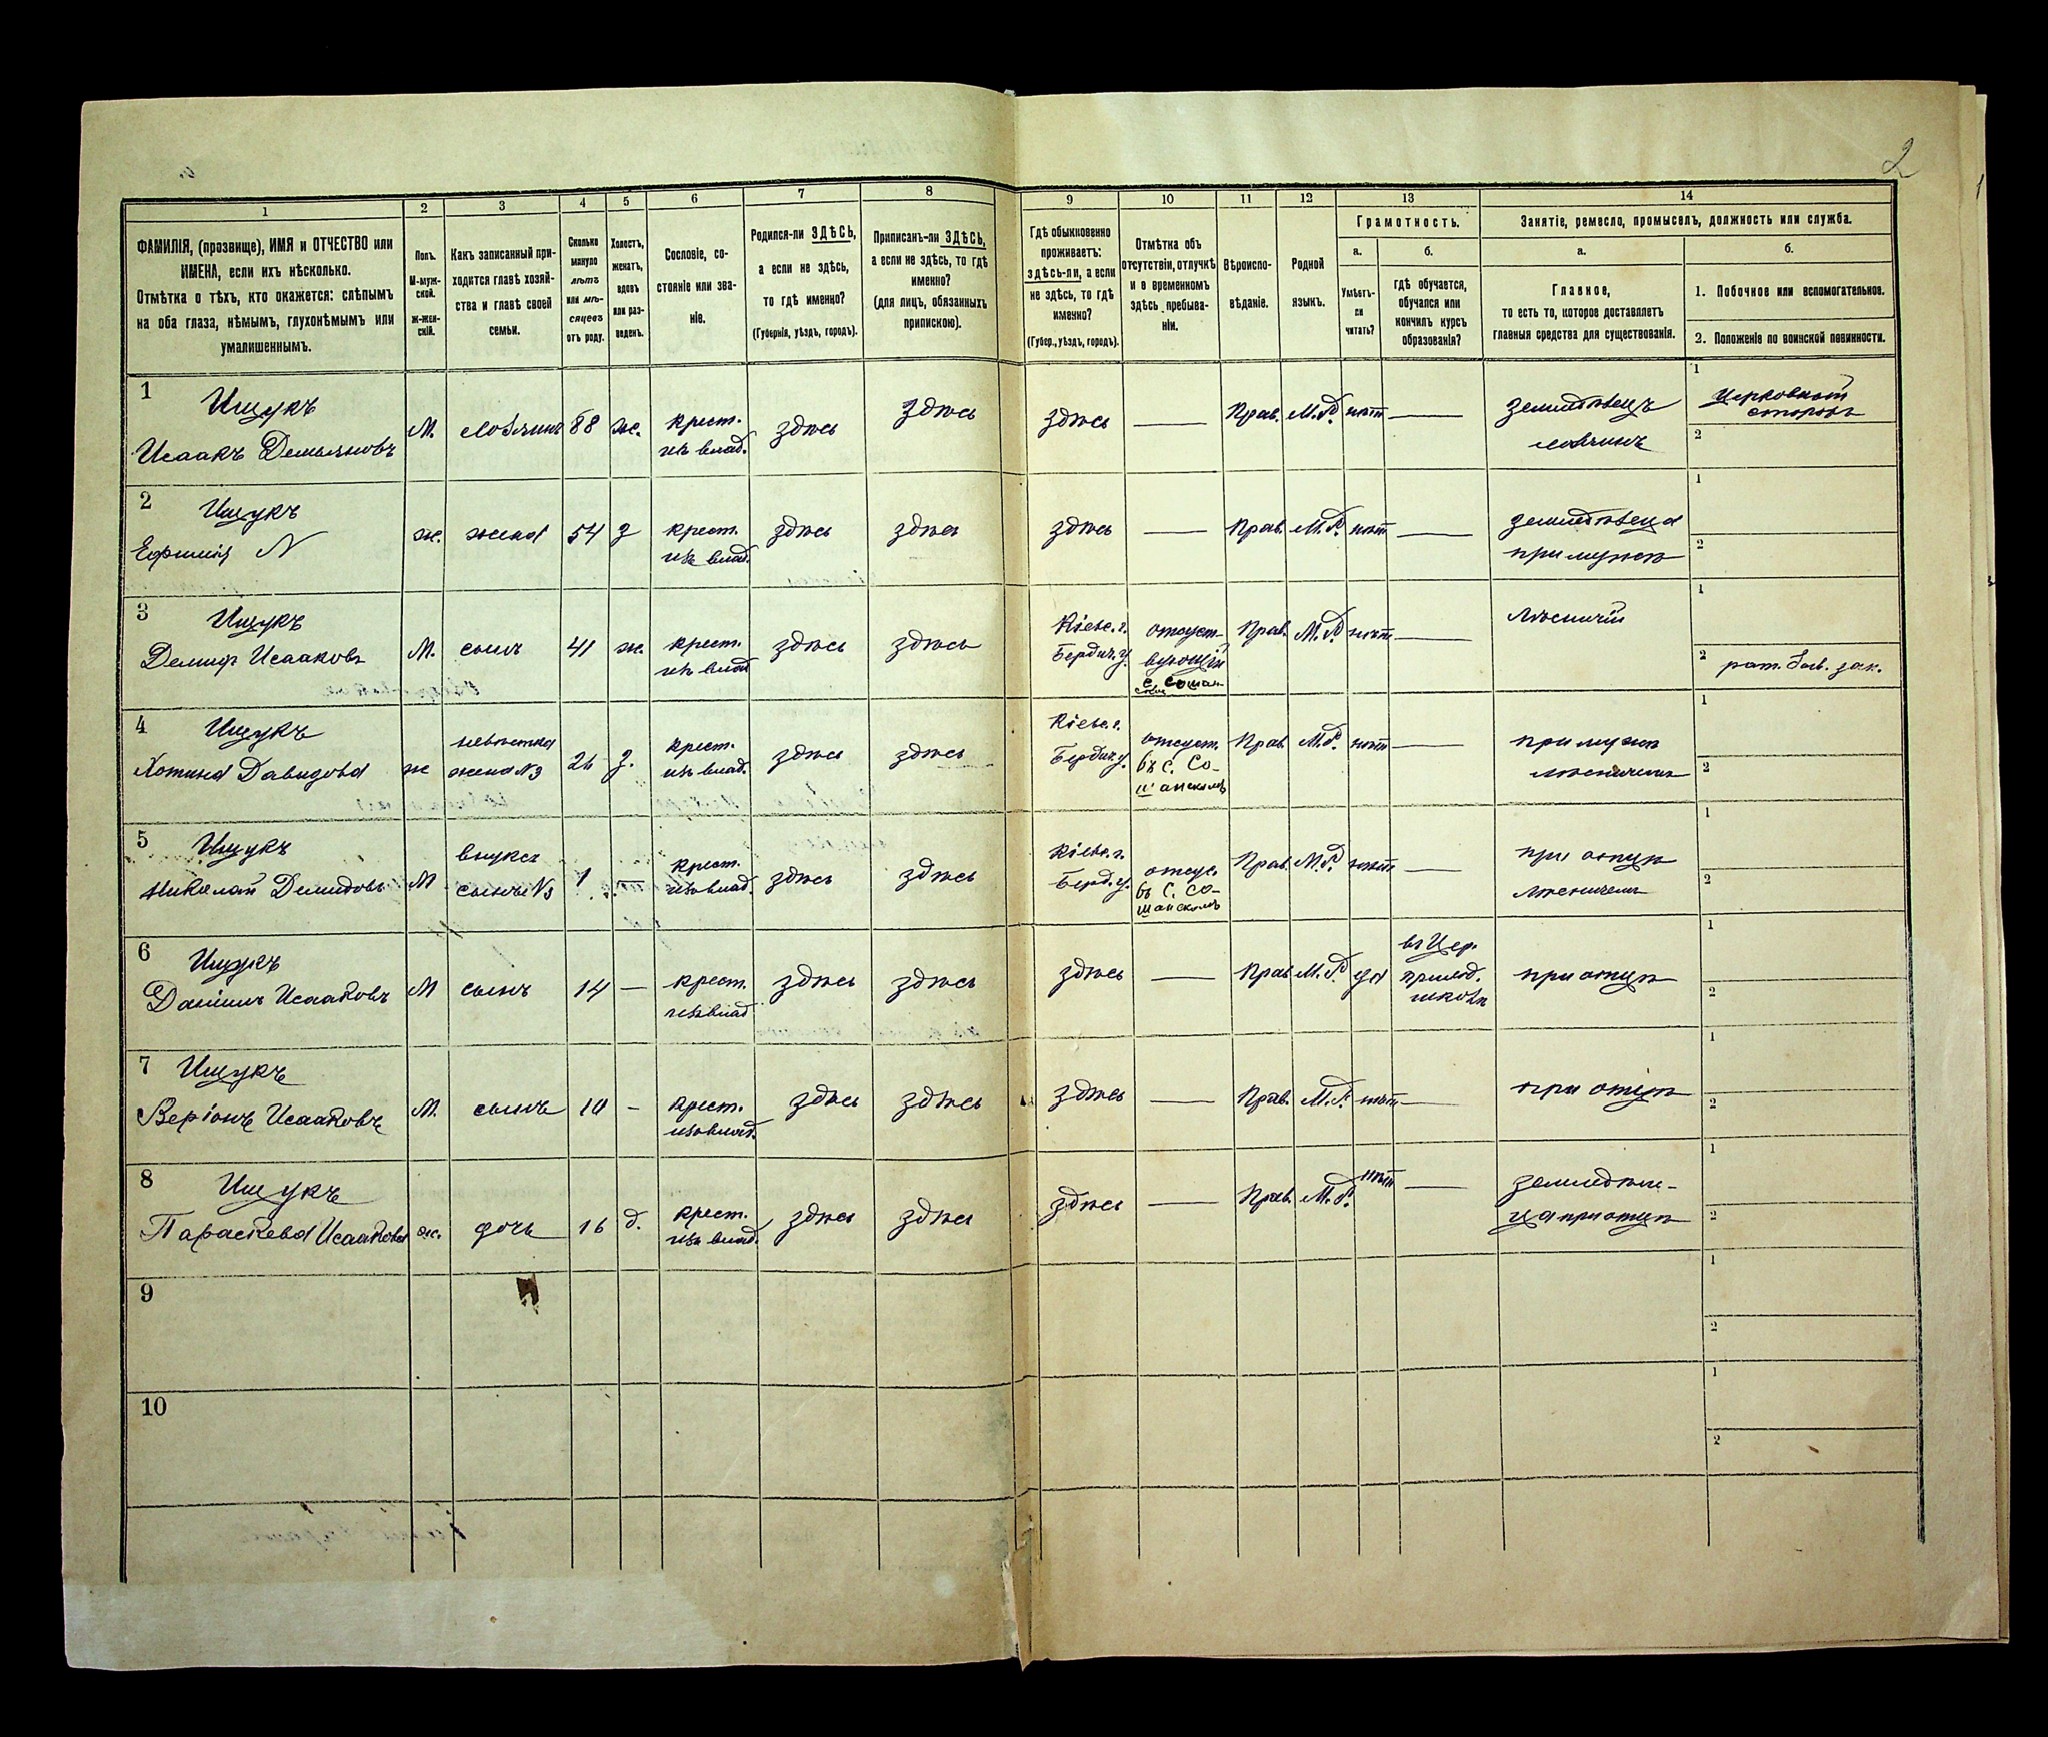 2
1
2
3
4
5
6
7
8
9
10
11
12
13
14
ФАМИЛІЯ, (прозвище), ИМЯ и ОТЧЕСТВО или
ИМЕНА, если ихъ нѣсколько.
Отмѣтка о тѣхъ, кто окажется: слѣпымъ
на оба глаза, нѣмымъ, глухонѣмымъ или
умалишеннымъ.
Полъ.
М-муж-
ской.
ж-жен-
скій.
Какъ записанный при-
ходится главѣ хозяй-
ства и главѣ своей
семьи.
Сколько
минуло
лѣтъ
или мѣ-
сяцевъ
отъ роду.
Холостъ,
женатъ,
вдовъ
или раз-
веденъ.
Сословіе, со-
стояніе или зва-
ніе.
Родился-ли ЗДѢСЬ,
а если не здѣсь,
то гдѣ именно?
(Губернія, уѣздъ, городъ).
Приписанъ-ли ЗДѢСЬ,
а если не здѣсь, то гдѣ
именно?
(для лицъ, обязанныхъ
припискою).
Гдѣ обыкновенно
проживаетъ:
здѣсь-ли, а если
не здѣсь, то гдѣ
именно?
(Губер., уѣздъ, городъ).
Отмѣтка объ
отсутствіи, отлучкѣ
и о временномъ
здѣсь пребыва-
ніи.
Вѣроиспо-
вѣданіе.
Родной
языкъ.
Грамотность.
а.
Умѣетъ-
ли
читать?
б.
гдѣ обучается,
обучался или
кончилъ курсъ
образованія?
Занятіе, ремесло, промыселъ, должность или служба.
а.
Главное,
то есть то, которое доставляетъ
главныя средства для существованія.
б.
1. Побочное или вспомогательное.
2. Положеніе по воинской повинности.
1
Ищукъ
Исаакъ Демьяновъ
М.
хозяинъ
58
ж.
крест.
изъ влад.
здѣсь
здѣсь
здѣсь
—
Прав.
М.Р.
нѣтъ
—
земледѣлецъ
хозяинъ
1
Церковный
сторожъ
2
2
Ищукъ
Ефимія N
ж.
жена
54
з
крест.
изъ влад.
здѣсь
здѣсь
здѣсь
—
Прав.
М.Р.
нѣтъ
—
при мужѣ
1
2
3
Ищукъ
Демидъ Исааковъ
М.
сынъ
41
ж.
крест.
изъ влад
здѣсь
здѣсь
Кіевс. г.
Бердич. у.
отсутст-
вующій
Прав.
М.Р.
нѣтъ
—
лѣсничій
1
2
рат. зап.
4
Ищукъ
Хотина Давидова
ж
невѣстка
жена N3
26
з.
крест.
изъ влад.
здѣсь
здѣсь
Кіевс. г.
Бердич. у.
отсутст.
въ с. Со-
шанскомъ
Прав.
М.Р.
нѣтъ
—
при мужѣ
лѣсничемъ
1
2
5
Ищукъ
Николай Демидовъ
М
внукъ
сынъ N3
1
—
крест.
изъ влад.
здѣсь
здѣсь
Кіевс. г.
Берд. у.
отсут.
въ с. Со-
шанскомъ
Прав.
М.Р.
нѣтъ
—
при отцѣ
лѣсничемъ
1
2
6
Ищукъ
Даніилъ Исааковъ
М
сынъ
14
—
крест.
изъ влад
здѣсь
здѣсь
здѣсь
—
Прав
М.Р.
да
въ Цер.
приход.
школѣ
при отцѣ
1
2
7
Ищукъ
Исааковъ
М.
сынъ
10
-
крест.
изъ влад.
здѣсь
здѣсь
здѣсь
—
Прав.
М.Р.
нѣтъ
—
при отцѣ
1
2
8
Ищукъ
Параскева Исаакова
ж.
дочь
16
д.
крест.
изъ влад.
здѣсь
здѣсь
здѣсь
—
Прав.
М.Р.
нѣтъ
—
земледѣли-
ца при отцѣ
1
2
9
1
2
10
1
2